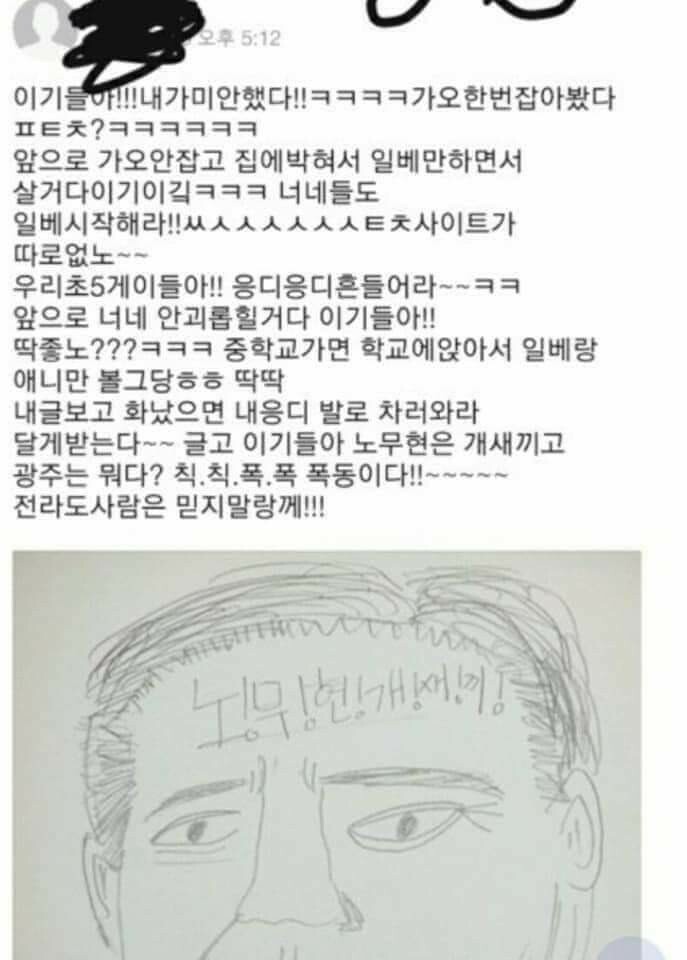 오후 5:12
이기들아!!!내가미안했다!!ㅋㅋㅋㅋ가오한번잡아봤다
ㅍㅌㅊ?ㅋㅋㅋㅋㅋㅋ
앞으로 가오안잡고 집에박혀서 일베만하면서
살거다이기이긬ㅋㅋㅋ 너네들도
일베시작해라!!ㅆㅅㅅㅅㅅㅅㅅㅌㅊ사이트가
따로없노~~
우리초5게이들아!! 응디응디흔들어라~~ㅋㅋ
앞으로 너네 안괴롭힐거다 이기들아!!
딱좋노???ㅋㅋㅋ 중학교가면 학교에앉아서 일베랑
애니만 볼그당ㅎㅎ 딱딱
내글보고 화났으면 내응디 발로 차러와라
달게받는다~~ 글고 이기들아 노무현은 개새끼고
광주는 뭐다? 칙.칙.폭.폭 폭동이다!!~~~~~
전라도사람은 믿지말랑께!!!
노!무!현!개!새!끼!